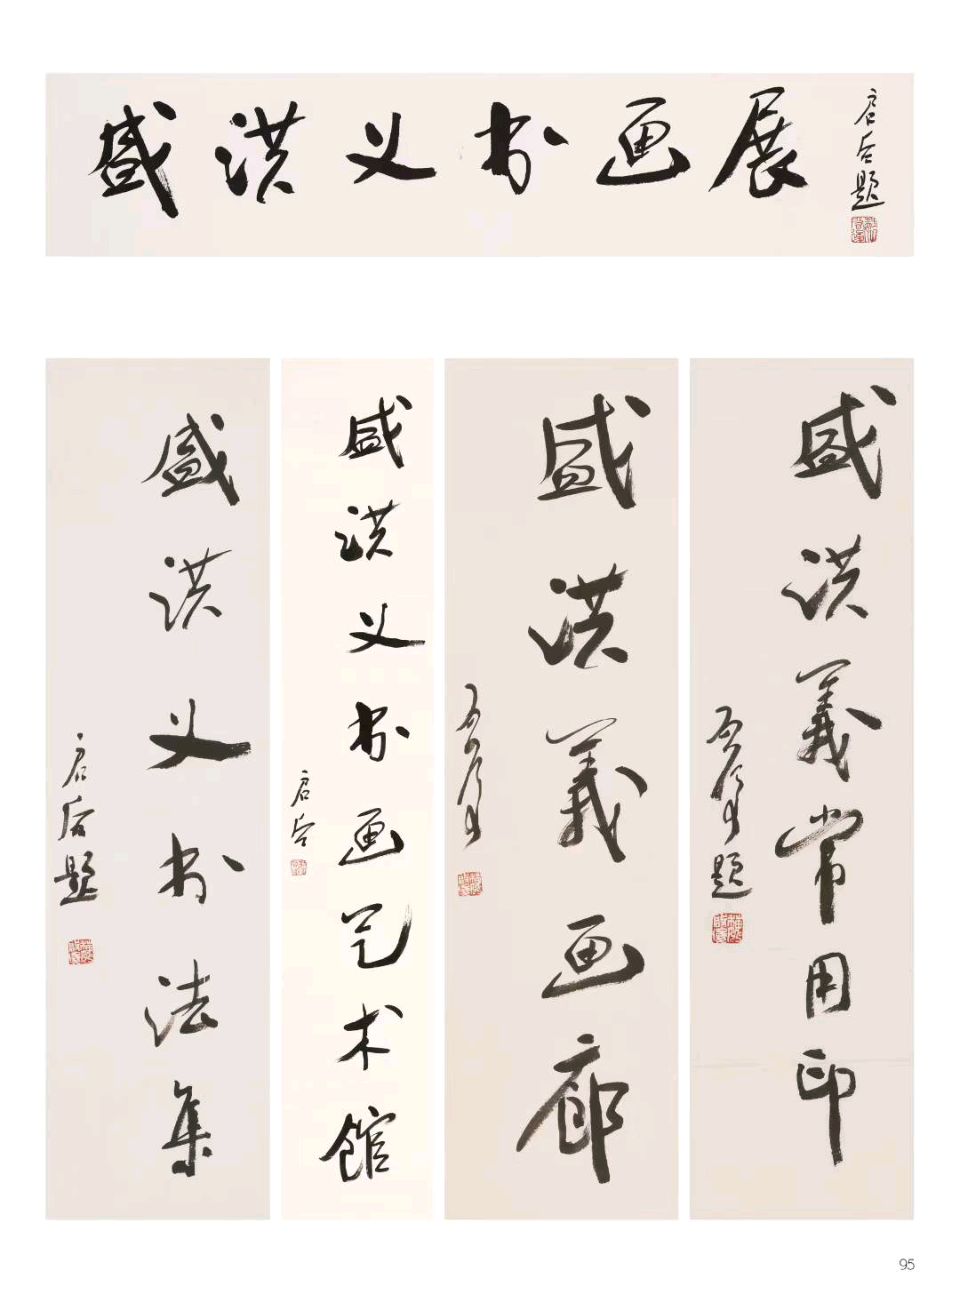 盛洪义书画展
启后题
盛洪义书法集
启后题
盛洪义书画艺术馆
启后
盛洪義画廊
盛洪義常用印
题
95